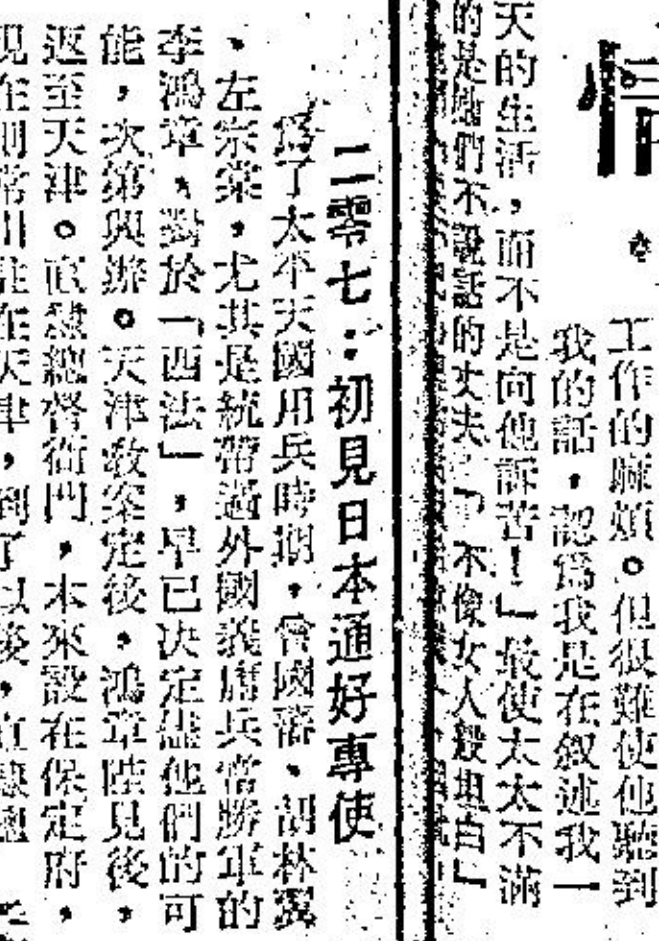 工作的麻煩。但很難使他聽到
我的話，認爲我是在叙述我一
天的生活，而不是向他訴苦！」最使太太不滿
的是她們不說話的丈夫。「不像女人般坦白」
二零七：初見日本通好專使
爲了太平天國用兵時期，曾國藩、胡林翼
、左宗棠，尤其是統帶過外國兵常勝軍的
李鴻章、對於「西法」，早已決定儘他們的可
能，次第興辦。天津敎案定後，鴻章陛見後，
返至天津。直隸總督衙門，本來設在保定府，
現在則常川駐在天津，到了以後，直隸總